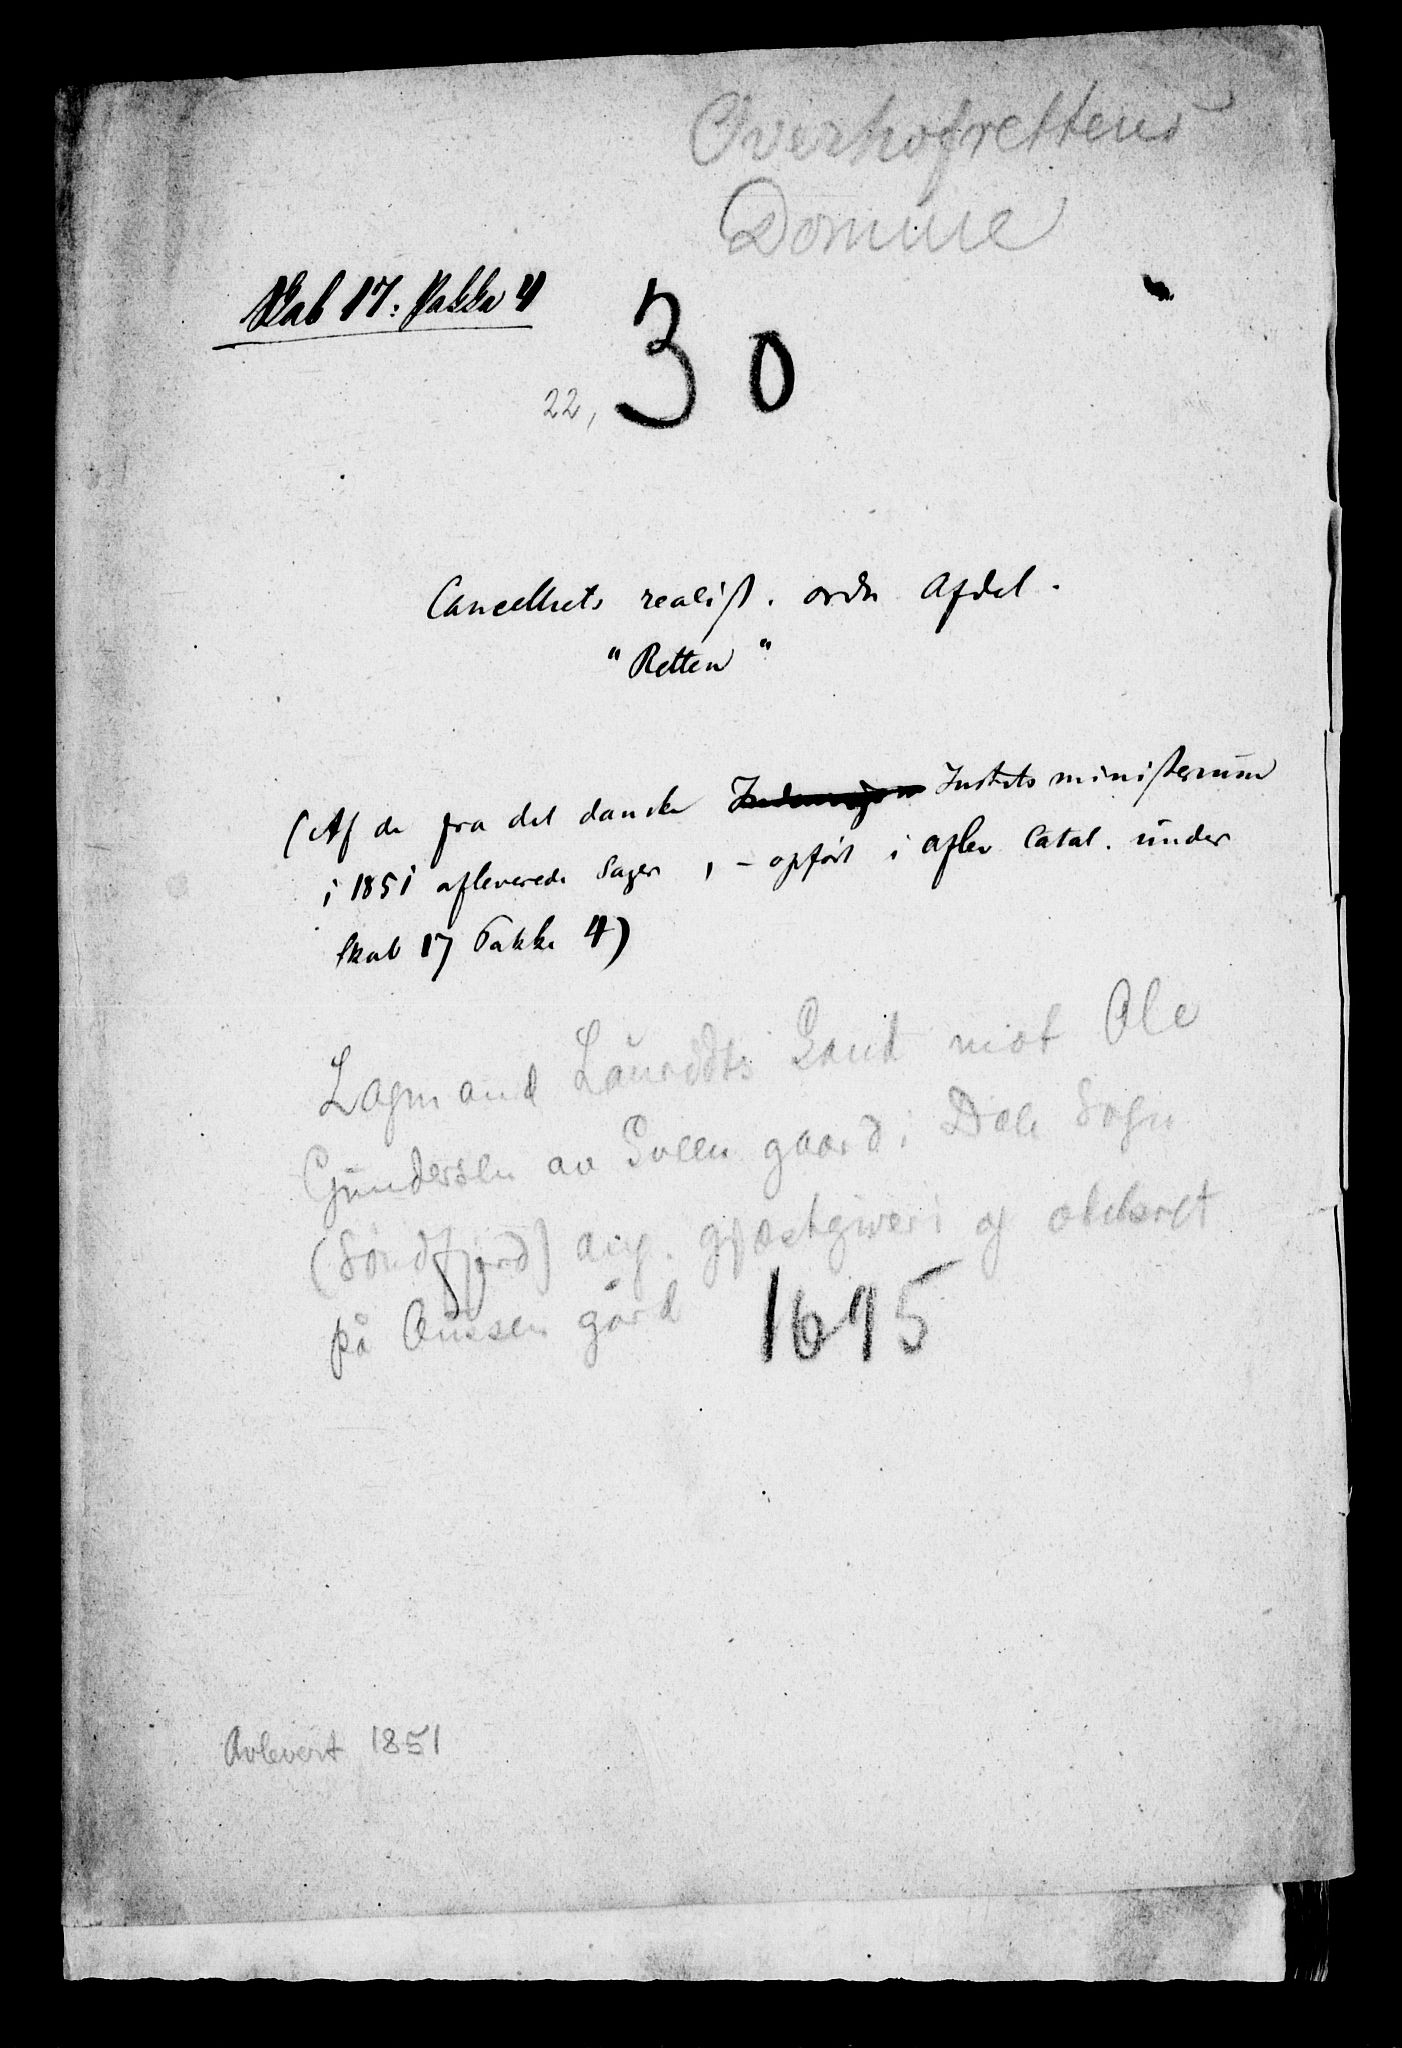 Overhofrettens
Domme
Skab 17: Pakke 4
22, 30
Cancelliets realist. ordn Afdel.
"Retten"
(Af de fra det danske Justitsministerium
i 1851 afleverede Sager, - opført i aflev Catal. under
Skab 17 Pakke 4)
Lagmand Lauridts Sand mot Ole
Gundersen av gaard i Dale Sogn
(Søndfjord) ang. gjæstgiveri og
på gård 1695
Avlevert 1851